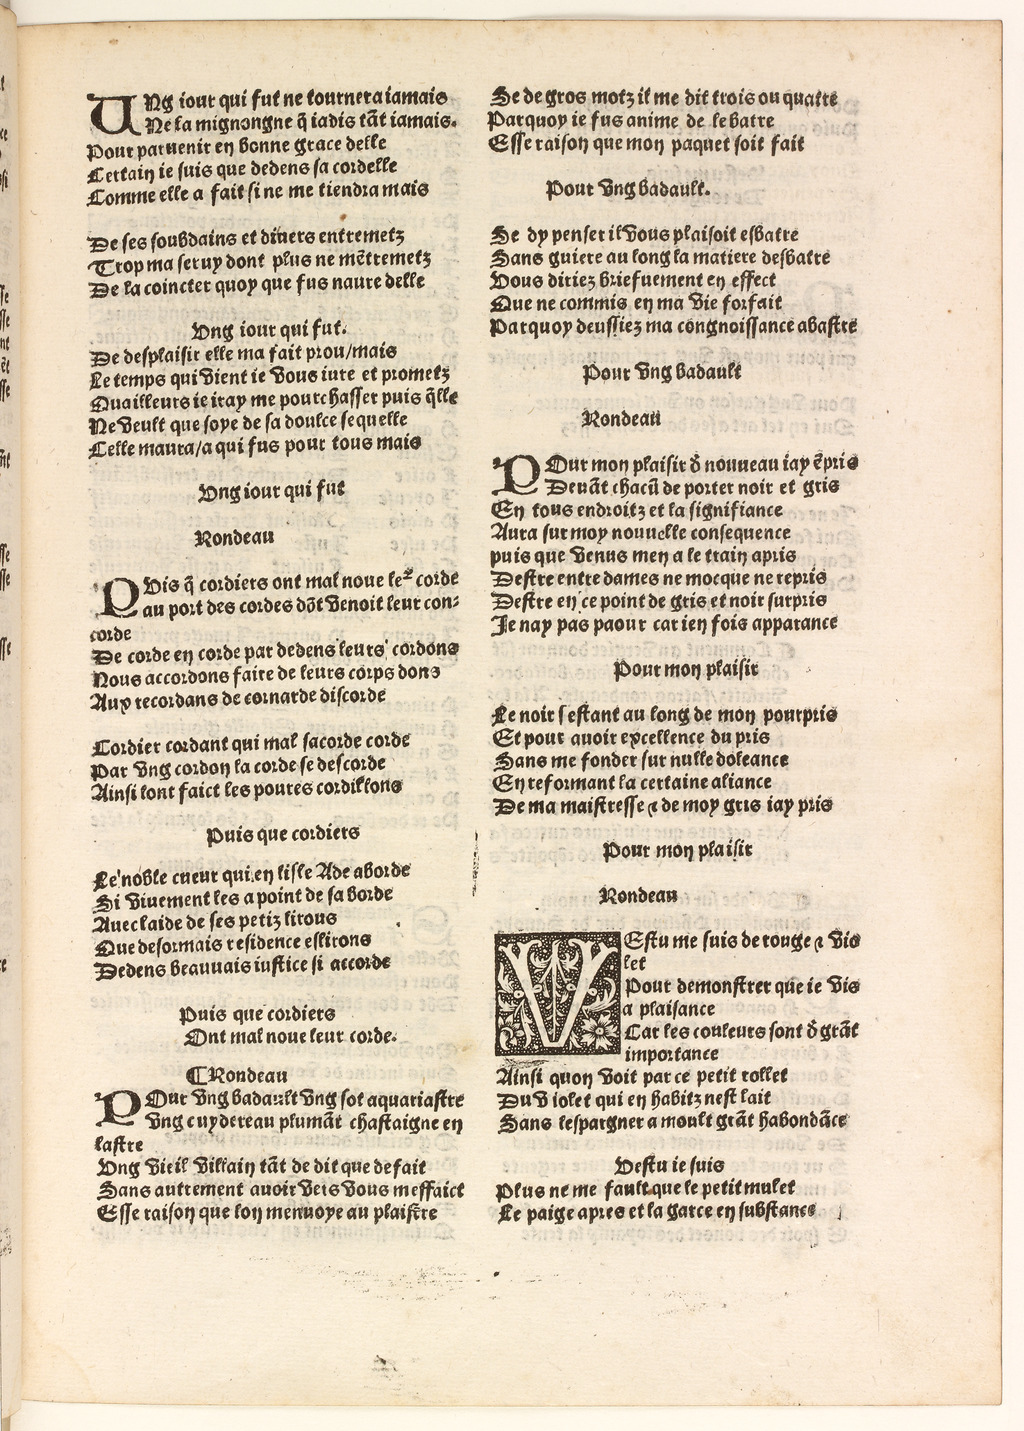 Ung iour qui fut ne tournera iamais
Ne la mignongne q̃ iadis tãt iamais.
Pour paruenir en bonne grace delle
Certain ie suis que dedens sa cordelle
Comme elle a fait si ne me tiendra mais
De ses soubdains et diuers entremetz
Trop ma seruy dont plus ne mẽtremetz
De la coincter quoy que fus naure delle
Ung iour qui fut.
De desplaisir elle ma fait prou/mais
Le temps qui vient ie vous iure et prometz
Quailleurs ie iray me pourchasser puis q̃lle
Ne veult que soye de sa doulce sequelle
Celle maura/a qui fus pour tous mais
Ung iour qui fut
Rondeau
PVis q̃ cordiers ont mal noue leᷣ corde
au port des cordes dõt venoit leur con-
corde
De corde en corde par dedens leurs cordons
Nous accordons faire de leurs corps dons
Aux recordans de cornarde discorde
Cordier cordant qui mal sacorde corde
Par vng cordon la corde se descorde
Ainsi font faict les poures cordillons
Puis que cordiers
Le noble cueur qui en lisle Ade aborde
Si viuement les a point de sa borde
Auec laide de ses petiz lirons
Que desormais residence eslirons
Dedens beauuais iustice si accorde
Puis que cordiers
Ont mal noue leur corde.
¶Rondeau
POur vng badault vng sot aquariastre
Vng cuydereau plumãt chastaigne en
lastre
Ung vieil villain tãt de dit que de fait
Sans autrement auoir vers vous meffaict
Esse raison que lon menuoye au plaistre
Se de gros motz il me dit trois ou quatre
Parquoy ie fus anime de le batre
Esse raison que mon paquet soit fait
Pour vng badault.
Se dy penser il vous plaisoit esbatre
Sans guiere au long la matiere desbatre
Vous diriez briefuement en effect
Que ne commis en ma vie forfait
Parquoy deussiez ma congnoissance abastre
Pour vng badault
Rondeau
POur mon plaisir d̃ nouueau iay ẽpris
Deuãt chacũ de porter noir et gris
En tous endroitz et la signifiance
Aura sur moy nouuelle consequence
puis que Venus men a le train apris
Destre entre dames ne mocque ne repris
Destre en ce point de gris et noir surpris
Je nay pas paour car ien fois apparance
Pour mon plaisir
Le noir sestant au long de mon pourpris
Et pour auoir excellence du pris
Sans me fonder sur nulle doleance
En reformant la certaine aliance
De ma maistresse ⁊ de moy gris iay pris
Pour mon plaisir
Rondeau
VEstu me suis de rouge ⁊ vio
let
Pour demonstrer que ie vis
a plaisance
Car les couleurs sont d̃ grãt
importance
Ainsi quon voit par ce petit rollet
Du violet qui en habitz nest lait
Sans lespargner a moult grãt habondãce
Vestu ie suis
Plus ne me fault que le petit mulet
Le paige apres et la garce en substance